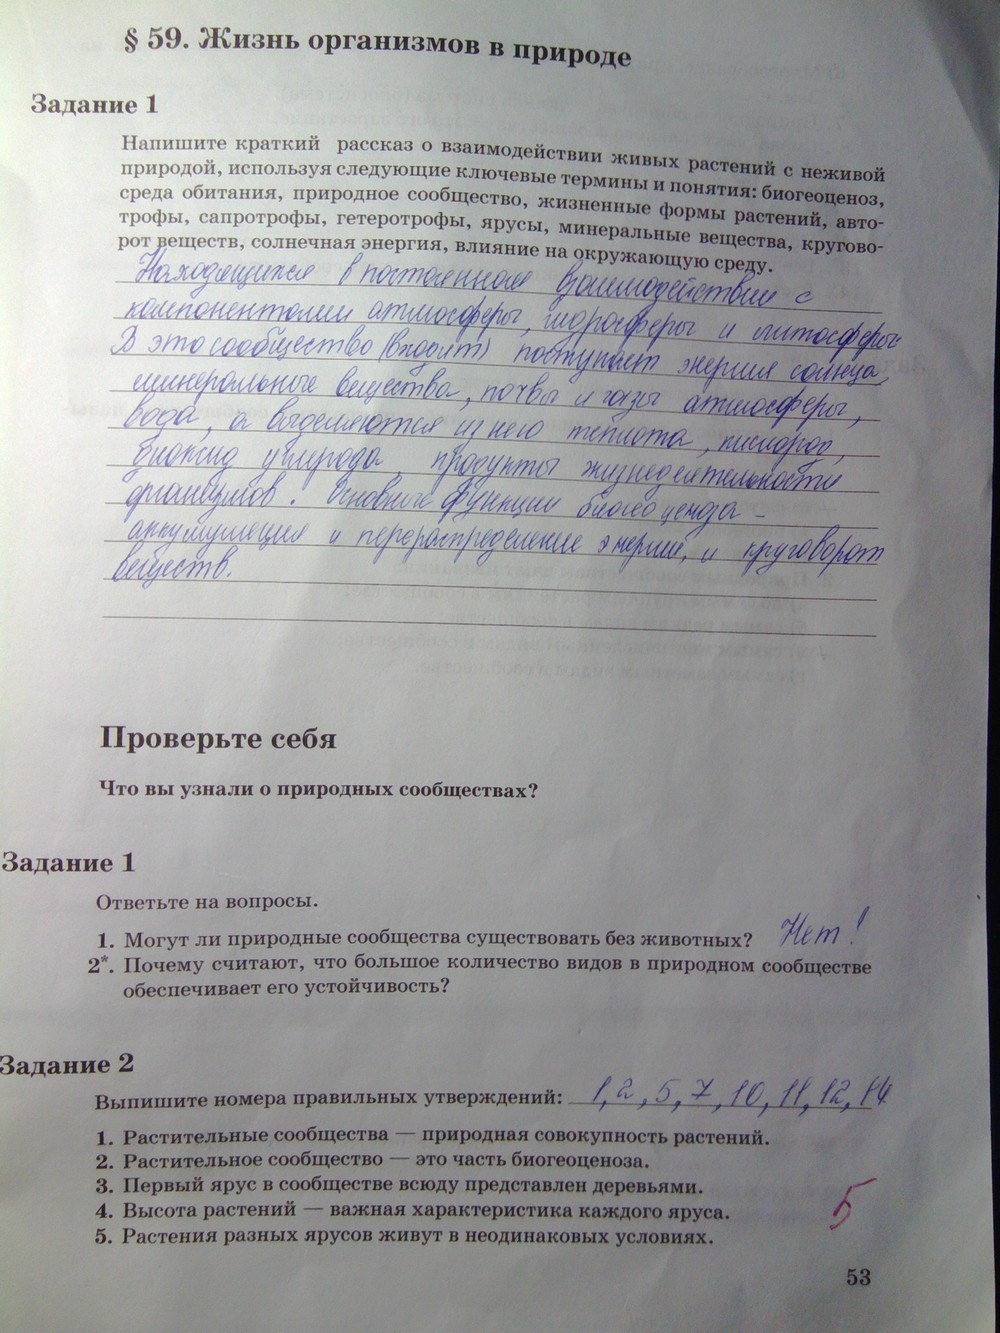 § 59. Жизнь организмов в природе
Задание 1
Напишите краткий рассказ о взаимодействии живых растений с неживой
природой, используя следующие ключевые термины и понятия: биогеоценоз,
среда обитания, природное сообщество, жизненные формы растений, авто-
трофы, сапротрофы, гетеротрофы, ярусы, минеральные вещества, кругово-
рот веществ, солнечная энергия, влияние на окружающую среду.
Находящихся в постоянном взаимодействии с
компонентами атмосферы, гидросферы и литосферы
В это сообщество (входит) поступает энергия солнца,
минеральные вещества, почвы и газы атмосферы,
вода, а выделяются из него теплота, кислород,
диоксид углерода, продукты жизнедеятельности
организмов. Основные функции биогеоценоза -
аккумуляция и перераспределение энергии, и круговорот
веществ.
Проверьте себя
Что вы узнали о природных сообществах?
Задание 1
Ответьте на вопросы.
1. Могут ли природные сообщества существовать без животных? Нет!
2*. Почему считают, что большое количество видов в природном сообществе
обеспечивает его устойчивость?
Задание 2
Выпишите номера правильных утверждений: 1, 2, 5, 7, 10, 11, 12, 14
1. Растительные сообщества — природная совокупность растений.
2. Растительное сообщество — это часть биогеоценоза.
3. Первый ярус в сообществе всюду представлен деревьями.
4. Высота растений — важная характеристика каждого яруса.
5. Растения разных ярусов живут в неодинаковых условиях.
5
53